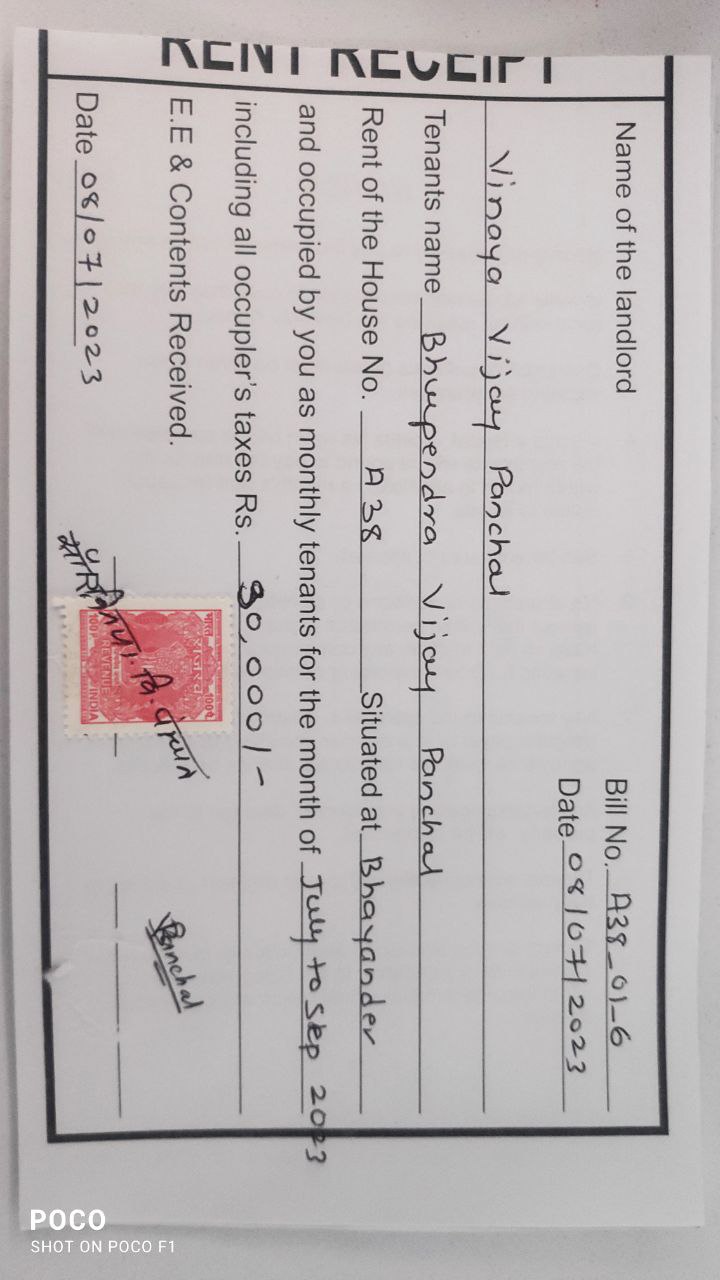 RENT RECEIPT
Bill No. A38_01_6
Name of the landlord
Date 08/07/2023
Vinaya Vijay Panchal
Tenants name Bhupendra Vijay Panchal
Rent of the House No. A 38 Situated at Bhayander
and occupied by you as monthly tenants for the month of July to Sep 2023
including all occupler's taxes Rs. 90,000/-
E.E & Contents Received.
Panchal
Date 08/07/2023
भारत
REVENUE
INDIA
POCO
SHOT ON POCO F1